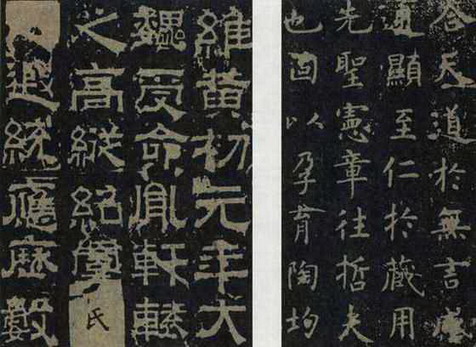 合天道於無言感
通顯至仁於藏用
先聖憲章往哲夫
也固以孕育陶均
維黃初元年大
魏受命胤軒轅
之高縱紹虞氏
遐統應歷數